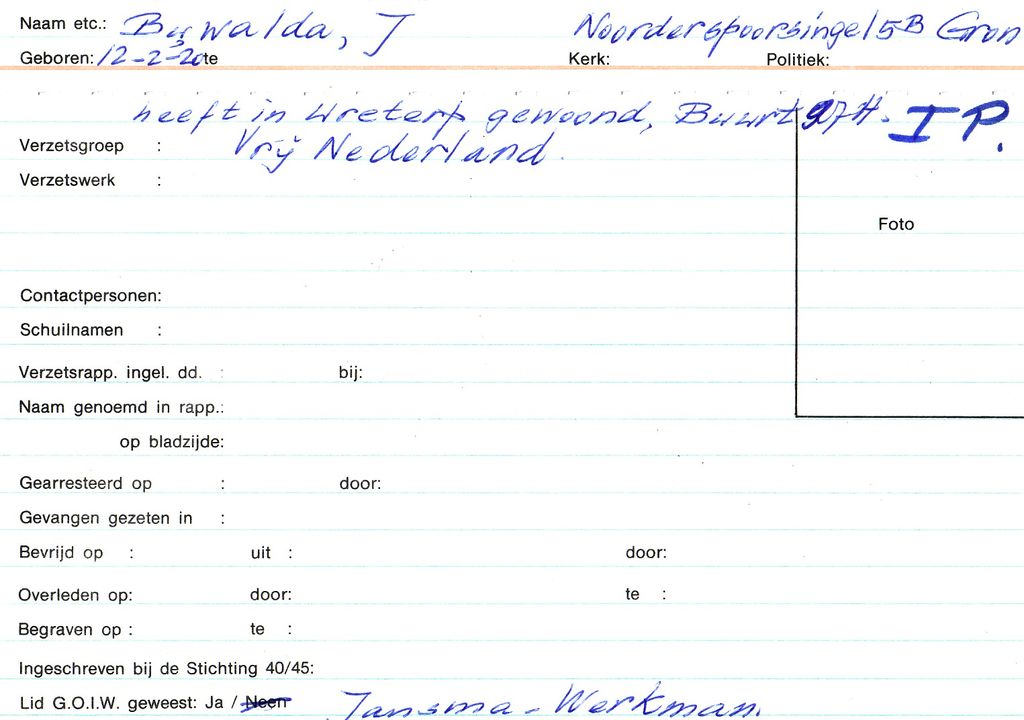 Naam etc.: Buwalda, J Noorderspoorsingel 5B Gron
Geboren: 12-2-20 te Kerk: Politiek:
heeft in Ureterp gewoond, Buurt 97H. I P.
Verzetsgroep : Vrij Nederland
Verzetswerk :
Foto
Contactpersonen:
Schuilnamen :
Verzetsrapp. ingel. dd. : bij:
Naam genoemd in rapp.:
op bladzijde:
Gearresteerd op : door:
Gevangen gezeten in :
Bevrijd op : uit : door:
Overleden op: door: te :
Begraven op : te :
Ingeschreven bij de Stichting 40/45:
Lid G.O.I.W. geweest: Ja / Neen Jansma - Werkman.